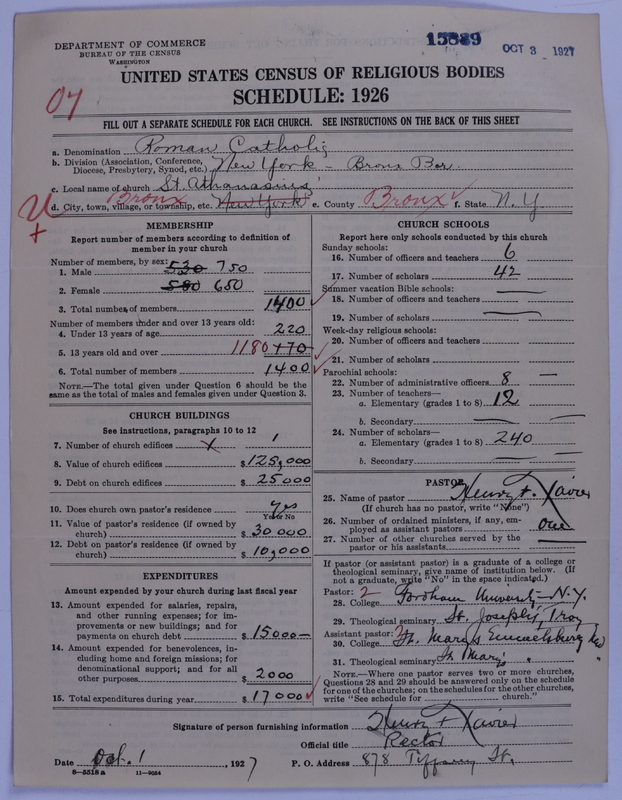 DEPARTMENT OF COMMERCE
BUREAU OF THE CENSUS
WASHINGTON
15839
OCT 3 1927
UNITED STATES CENSUS OF RELIGIOUS BODIES
SCHEDULE: 1926
04
FILL OUT A SEPARATE SCHEDULE FOR EACH CHURCH. SEE INSTRUCTIONS ON THE BACK OF THIS SHEET
a. Denomination Roman Catholic
b. Division (Association, Conference, Diocese, Presbytery, Synod, etc.) New York - Bronx Bor.
c. Local name of church St. Athanasius'
d. City, town, village, or township, etc. New York Bronx e. County Bronx f. State N.Y.
MEMBERSHIP
Report number of members according to definition of
member in your church
Number of members, by sex:
1. Male 530 750
2. Female 580 650
3. Total number of members 1400
Number of members under and over 13 years old:
4. Under 13 years of age 220
5. 13 years old and over 1180
6. Total number of members 1400
NOTE.—The total given under Question 6 should be the
same as the total of males and females given under Question 3.
CHURCH BUILDINGS
See instructions, paragraphs 10 to 12
7. Number of church edifices 1
8. Value of church edifices $125,000
9. Debt on church edifices $25000
10. Does church own pastor's residence? yes
Yes or No
11. Value of pastor's residence (if owned by
church) $30000
12. Debt on pastor's residence (if owned by
church) $10,000
EXPENDITURES
Amount expended by your church during last fiscal year
13. Amount expended for salaries, repairs,
and other running expenses; for im-
provements or new buildings; and for
payments on church debt $15000—
14. Amount expended for benevolences, in-
cluding home and foreign missions; for
denominational support; and for all
other purposes $2000
15. Total expenditures during year $17000
CHURCH SCHOOLS
Report here only schools conducted by this church
Sunday schools:
16. Number of officers and teachers 6
17. Number of scholars 42
Summer vacation Bible schools:
18. Number of officers and teachers —
19. Number of scholars —
Week-day religious schools:
20. Number of officers and teachers
21. Number of scholars
Parochial schools:
22. Number of administrative officers 8 —
23. Number of teachers—
a. Elementary (grades 1 to 8) 12
b. Secondary — —
24. Number of scholars—
a. Elementary (grades 1 to 8) 240
b. Secondary — —
PASTOR
25. Name of pastor Henry F. Xavier
(If church has no pastor, write "None")
26. Number of ordained ministers, if any, em-
ployed as assistant pastors one
27. Number of other churches served by the
pastor or his assistants —
If pastor (or assistant pastor) is a graduate of a college or
theological seminary, give name of institution below. (If
not a graduate, write "No" in the space indicated.)
Pastor: 2
28. College Fordham University - N.Y.
29. Theological seminary St. Joseph's, Troy
Assistant pastor: 2
30. College St. Marys Emmetsburg Md
31. Theological seminary St Marys " "
NOTE.—Where one pastor serves two or more churches,
Questions 28 and 29 should be answered only on the schedule
for one of the churches; on the schedules for the other churches,
write "See schedule for ________ church."
Signature of person furnishing information Henry F Xavier
Official title Rector
Date Oct. 1, 1927 P. O. Address 878 Tiffany St.
8-5518 a 11-9054